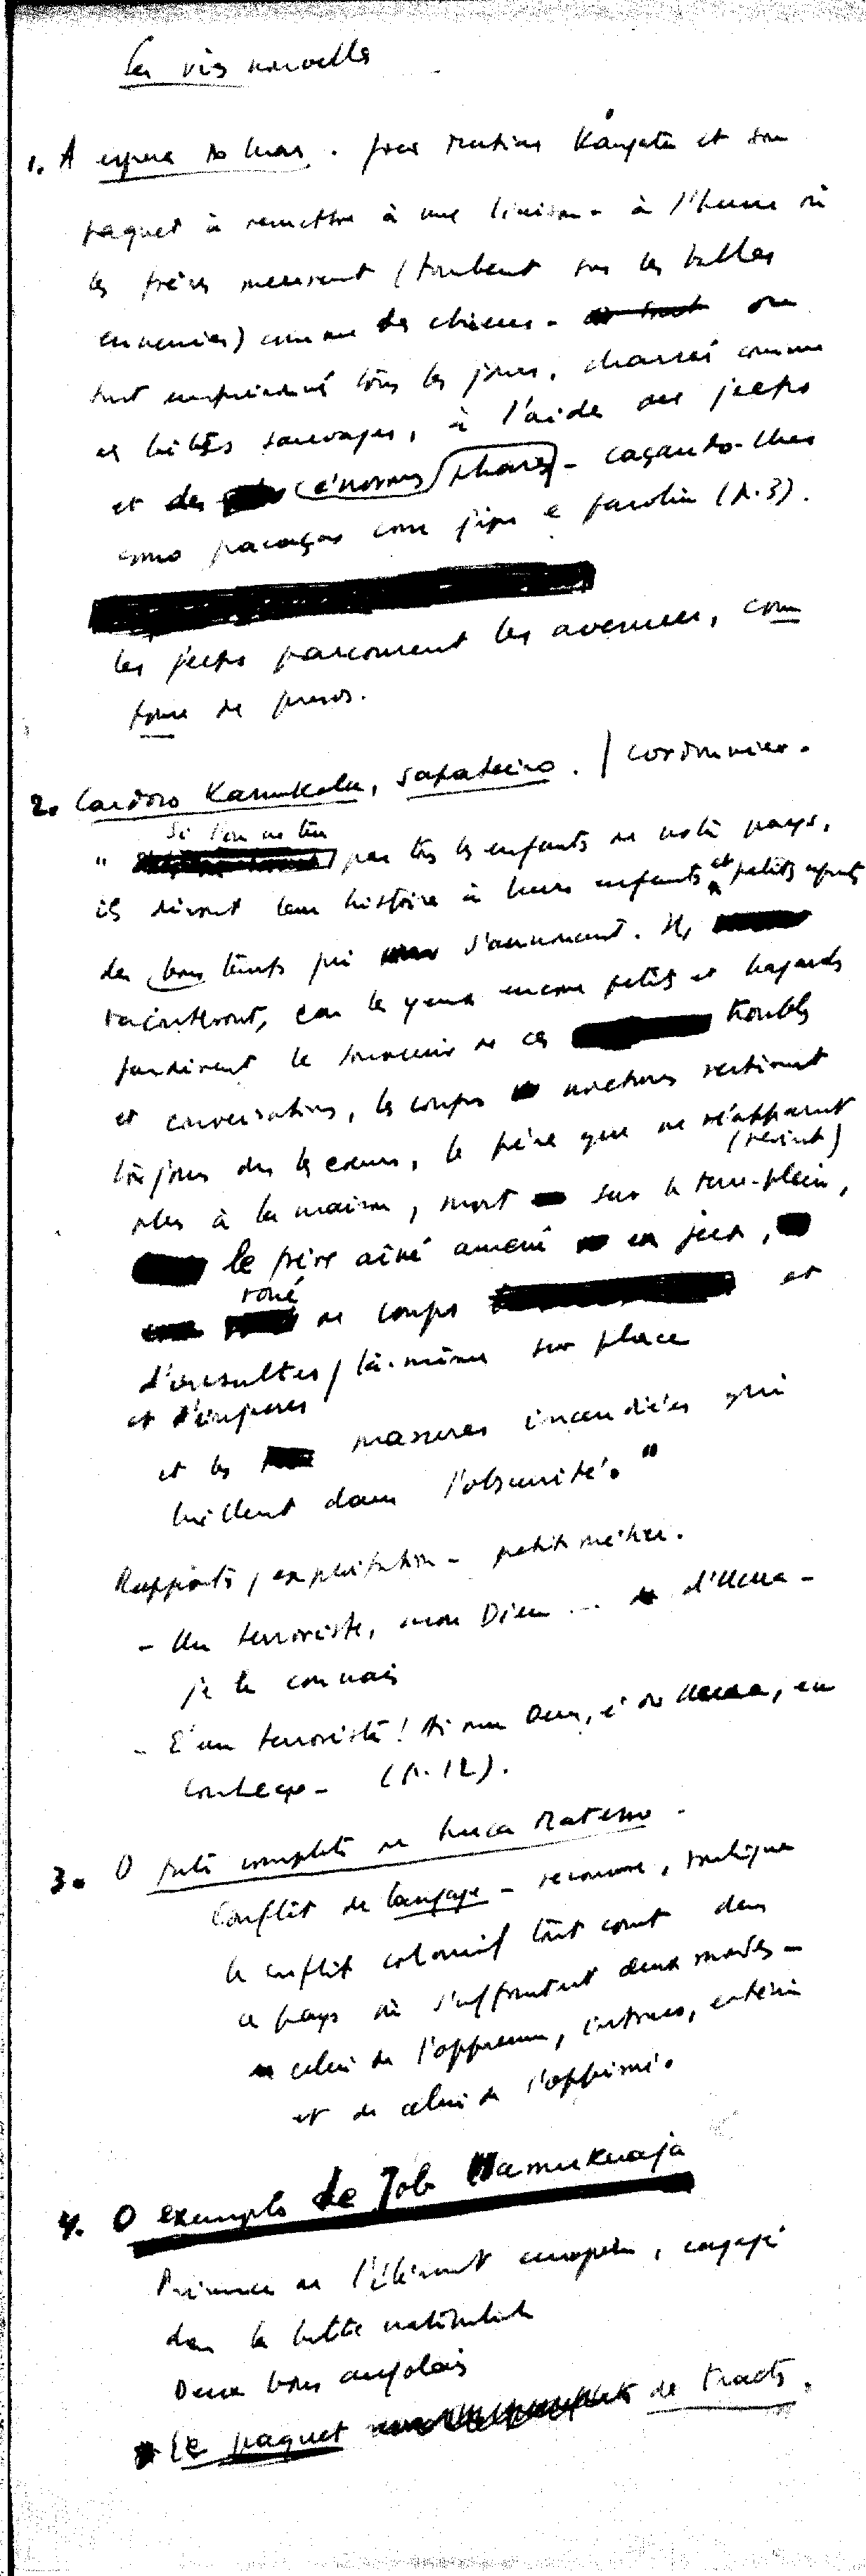 La vie nouvelle
1. À espera do luar. João Matias Kangatu et son
paquet à remettre à une liaison - à l'heure où
les frères meurent (tombent sous les balles
ennemies) comme des chiens - on
tous les jours, chassés comme
des bêtes sauvages, à l'aide des jeeps
et des énormes phares - caçando-lhes
como pacaças com jipe e farolim (p. 3).
les jeeps parcourent les avenues, com
fome de presos.
2. Cardoso Kamukolo, sapateiro. / cordonnier.
Si l'on ne tue
" pas tous les enfants de notre pays,
ils diront leur histoire à leurs enfants et petits enfants
des bons temps qui s'annoncent. Ils
raconteront, car les yeux encore petits et hagards
garderont le souvenir de ces troubles
et conversations, les coups nocturnes restiront
toujours dans les cœurs, le père que ne réapparut
(revint)
plus à la maison, mort sur le terre-plein,
le frère aîné amené en jeep,
roué
de coups et
d'insultes / là-même sur place
et d'injures
et les masures incendiées qui
brillent dans l'obscurité."
Rapports, exploitation - petit métier.
- Un terroriste, mon Dieu ... d'
je le connais
- É um terrorista! meu Deus, é do , eu
conheço - (p. 12).
3. O fato completo de Lucas Matesso -
Conflit de langage - recouvre, souligne
le conflit colonial tout court dans
ce pays où s'affrontent deux mondes -
celui de l'oppresseur, intrus,
et de celui de l'opprimé.
4. O exemplo de Job Hamukuaja
Présence de l'élément européen, engagé
dans la lutte nationaliste
Deux bons angolais
Le paquet de tracts.